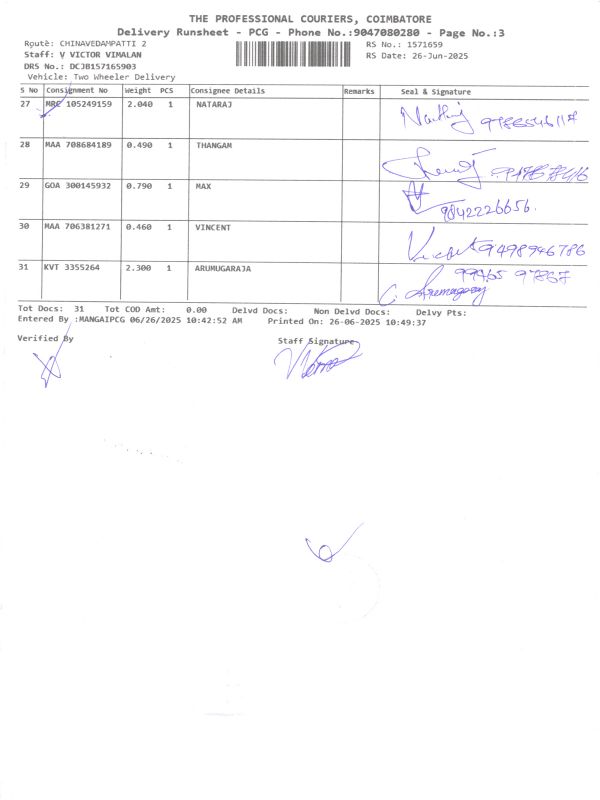 THE PROFESSIONAL COURIERS, COIMBATORE
Delivery Runsheet - PCG - Phone No.:9047080280 - Page No.:3
Route: CHINAVEDAMPATTI 2 RS No.: 1571659
Staff: V VICTOR VIMALAN RS Date: 26-Jun-2025
DRS No.: DCJB157165903
Vehicle: Two Wheeler Delivery
S No Consignment No Weight PCS Consignee Details Remarks Seal & Signature
27 MRC 105249159 2.040 1 NATARAJ
28 MAA 708684189 0.490 1 THANGAM
29 GOA 300145932 0.790 1 MAX
9842226656.
30 MAA 706381271 0.460 1 VINCENT
9498946786
31 KVT 3355264 2.300 1 ARUMUGARAJA
Tot Docs: 31 Tot COD Amt: 0.00 Delvd Docs: Non Delvd Docs: Delvy Pts:
Entered By :MANGAIPCG 06/26/2025 10:42:52 AM Printed On: 26-06-2025 10:49:37
Verified By Staff Signature